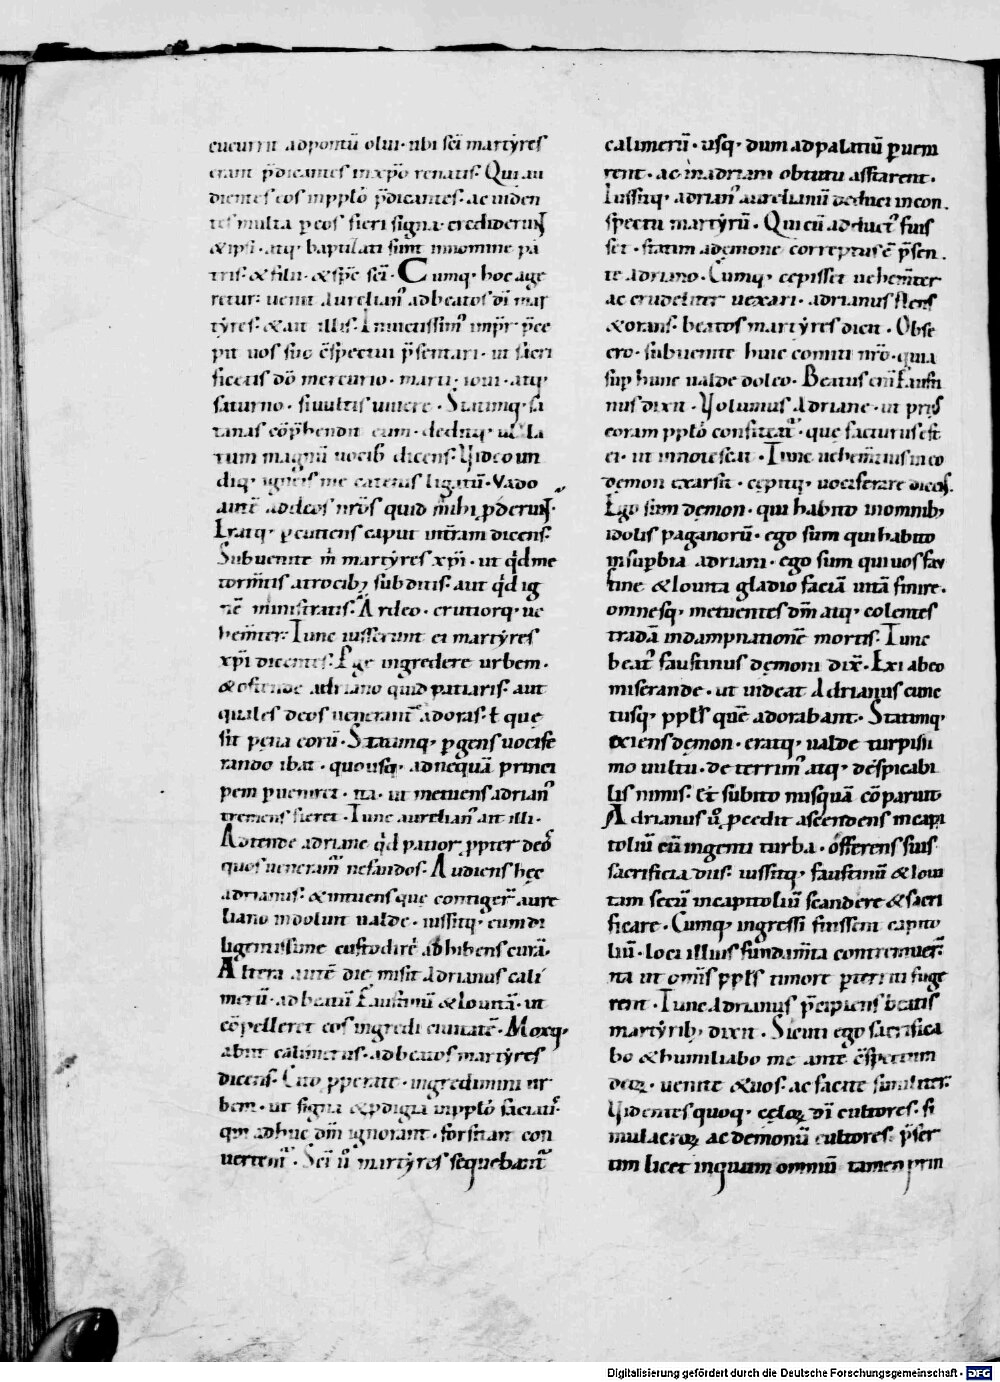 cucurrit ad pontū olui · ubi sc̄i martẏres
erant p̄dicantes in xp̄o renatis · Qui au
dientes eos in pplō p̄dicantes · ac uiden
tes multa p eos fieri signa · crediderunt
& ipsi · atq; baptizati sunt in nomine pa
tris · & filii · & sp̄c sc̄i · Cumq; hoc age
retur · uenit Aurelian⁹ ad beatos dī mar
tẏres · & ait illis · Inuictissim⁹ imp̄r p̄ce
pit uos suo c̄spectui p̄sentari · ut sacri
ficetis dō mercurio · marti · ioui · atq;
saturno · si uultis uiuere · Statimq; sa
tanas cōp̄hendit eum · deditq;
tum magnū uocib; dicens · Video un
diq; igneis me catenis ligatū · Vado
aut̄ ad deos nr̄os quid mihi pderunt ·
Eratq; pcutiens caput int̄ram dicens ·
Subuenite m̄ martẏres xp̄i · ut qd me
torm̄tis atrocib; subditis · aut qd ig
nē ministratis · Ardeo · cruciorq; ue
hem̄ter · Tunc iusserunt ei martẏres
xp̄i dicentes · Pge ingredere urbem ·
& ostende adriano quid patiaris · aut
quales deos uenerant⁹ adoras · ł quę
sit pęna eorū · Statimq; pgens uocife
rando ibat · quousq; ad nequā princi
pem pueniret · ita · ut metuens adrian⁹
tremens fieret · Tunc aurelian⁹ ait illi ·
Adtende adriane qd patior ppter deos
quos ueneram⁹ nefandos · Audiens hęc
adrianus · & intuens que contiger̄ aure
liano indoluit ualde · iussitq; eum di
ligentissime custodire · adhibens curā ·
Altera autē die misit Adrianus cali
merū · ad beatū Faustinū & Iouitā · ut
cōpelleret eos ingredi ciuitatē · Moxq;
abiit calimerus · ad beatos martẏres
dicens · Cito pperate · ingredimini ur
bem · ut signa & pdigia in pplō faciatis ·
qui adhuc dm̄ ignorant · forsitan con
uertent⁹ · Sc̄i ū martẏres sequebant⁹
calimerū · usq; dum ad palatiū puem
rent · ac in adriani obtutu asstarent ·
Iussitq; adrian⁹ aurelianū deduci in con
spectu martẏrū · Qui cū adduct⁹ fuis
set · statim a demone correptus ē p̄sen
te adriano · Cumq; cepisset uehem̄ter
ac crudeliter uexari · adrianus flens
& orans · beatos martẏres dicit · Obse
cro · subuenite huic comiti nr̄o · quia
sup hunc ualde doleo · Beatus eni Fausti
nus dixit · Volumus Adriane · ut pri⁹
coram pplō confiteat⁹ · que facturus est
ei · ut innotescat · Tunc uehem̄tius in eo
demon exarsit · cepitq; uociferare dicens ·
Ego sum demon · qui habito in omnib;
idolis paganorū · ego sum qui habito
in supbia adriani · ego sum qui uos fau
stine & Iouita gladio faciā uitā finire ·
omnesq; metuentes dm̄ atq; colentes
tradā in dampnationē mortis · Tunc
beat⁹ faustinus dęmoni dix̄ · Exi ab eo
miserande · ut uideat Adrianus cunc
tusq; ppl̄s quē adorabant · Statimq;
exiens dęmon · eratq; ualde turpissi
mo uultu · deterrim⁹ atq; despicabi
lis nimis · et subito nusquā cōparuit ·
Adrianus ū pcedit ascendens in capi
toliū cū ingenti turba · offerens suis
sacrificia diis · iussitq; faustinū & Ioui
tam secū in capitoliū scandere & sacri
ficare · Cumq; ingressi fuissent capito
liū · loci illius fundam̄ta contremuer̄ ·
ita ut om̄s ppl̄s timore pterriti fuge
rent · Tunc Adrianus p̄cipiens beatis
martẏrib; dixit · Sicuti ego sacrifica
bo & humiliabo me ante c̄spectum
deoꝝ · uenite & uos · ac facite similiter ·
Videntes quoq; cęloꝝ dī cultores · si
mulacroꝝ ac demonū cultores · p̄ser
tim licet inquam omniū tamen prin